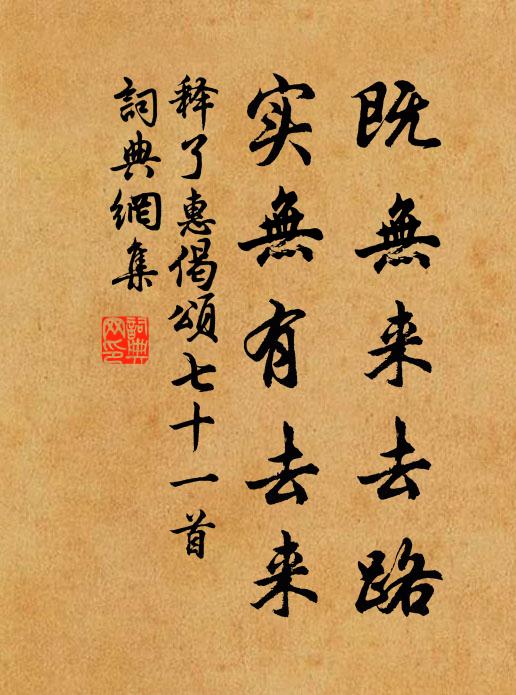 既無来去路
实無有去来
释了惠偈頌七十一首
詞典網集
詞典
网印